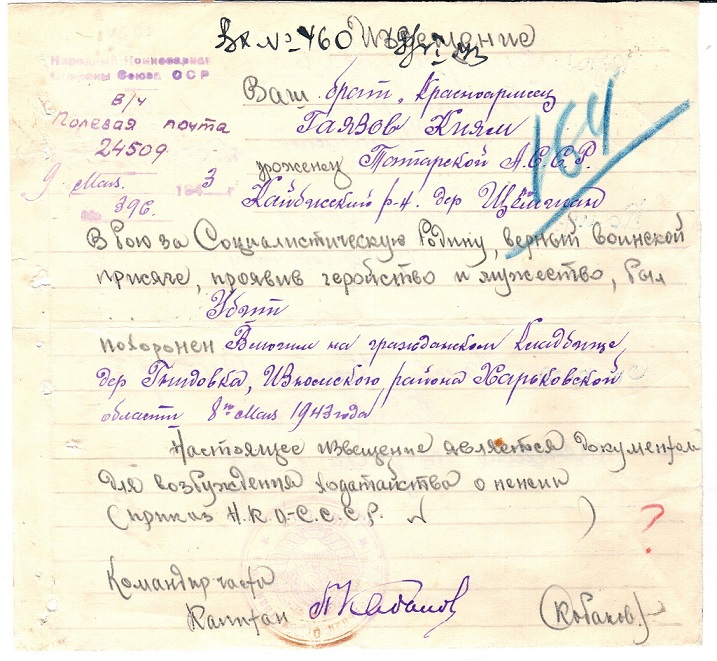 Вх № 460 Извещение
Народный Комиссариат
Обороны Союза ССР
в/ч
Полевая почта
24509
9 мая 1943 г
№ 396.
164
Ваш брат, Красноармеец
Гаязов Киям
уроженец Татарской А.С.С.Р.
Кайбисский р-н. дер
В бою за Социалистическую Родину, верный воинской
присяге, проявив геройство и мужество, был
Убит
похоронен на гражданском Кладбище
дер Изюмского района Харьковской
области 8го мая 1943 года
Настоящее извещение является документом
для возбуждения ходатайства о пенсии
(приказ Н.К.О-С.С.С.Р. № )
?
Командир части
Капитан (Кабанов)